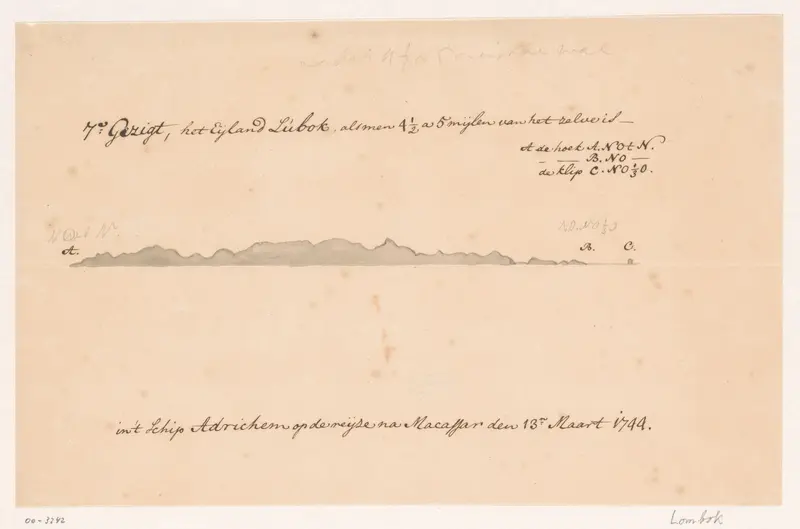 7e. Gezigt, het Eyland Lúbok, alsmen 4½ a 5 mijlen van het zelve is—
At de hoek A. NOtN.
— — B. NO —
de klip C. NO⅓O.
A. B. C.
in't Schip Adrichem op de reijze na Macassar den 13en Maart 1744.
00-3242 Lombok